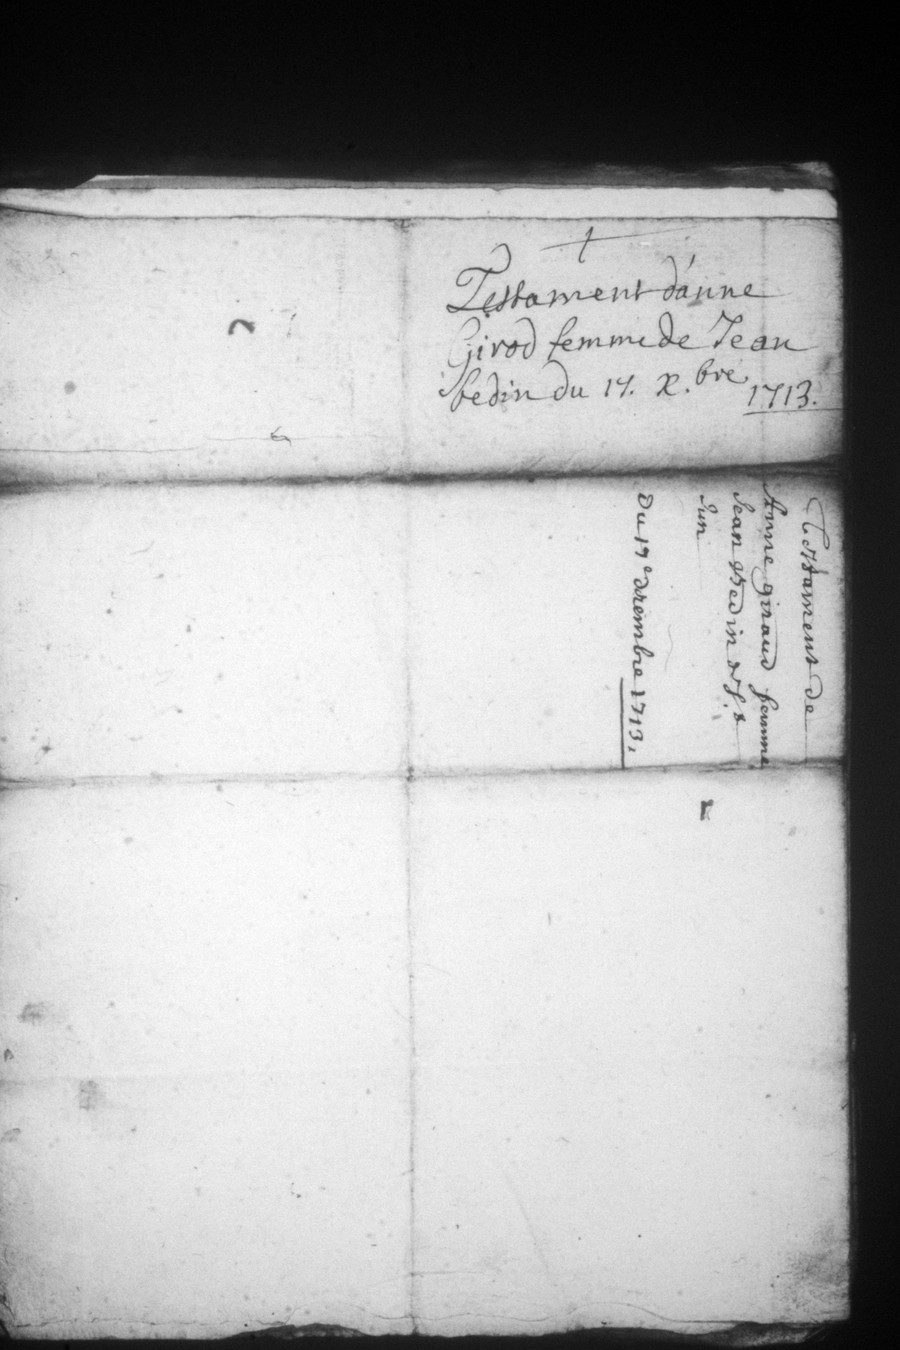 Testament d'anne
Girod femme de Jean
bedin du 17. X.bre 1713.
Testament de
Anne giraud femme
Jean Bedin
Du 17e decembre 1713.